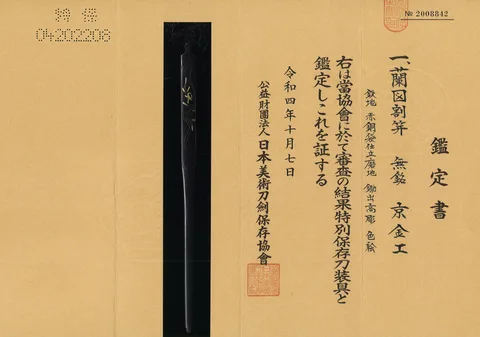 № 2008842
鑑定書
一、蘭図割笄 無銘 京金工
鉄地 赤銅袋仕立磨地 鋤出高彫 色絵
右は當協會に於て審査の結果特別保存刀装具と
鑑定しこれを証する
令和四年十月七日
公益財團法人 日本美術刀劍保存協會
特保